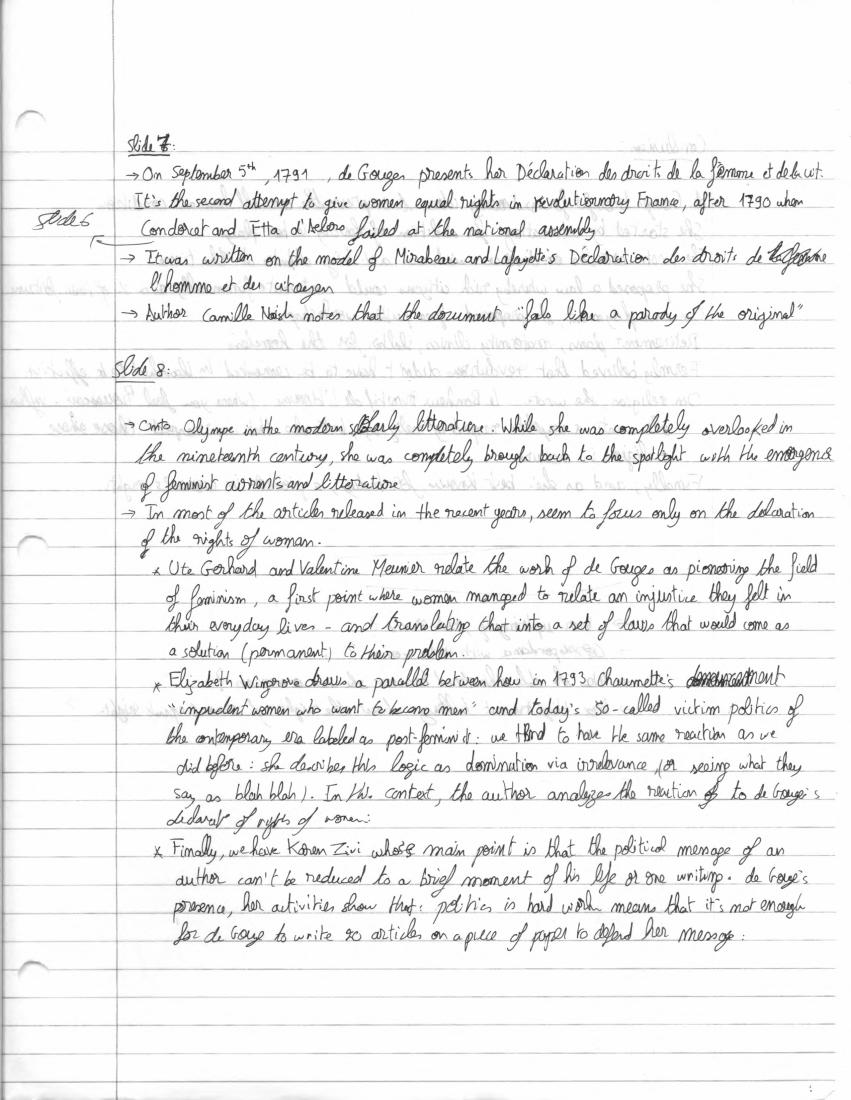 Slide 7:
→ On September 5th, 1791, de Gouges presents her Déclaration des droits de la femme et de la cit.
It's the second attempt to give women equal rights in revolutionary France, after 1790 when
Slide 6
Condorcet and Etta d'Aelders failed at the national assembly
→ It was written on the model of Mirabeau and Lafayette's Déclaration des droits de
l'homme et du citoyen
→ Author Camille Naish notes that the document "feels like a parody of the original"
Slide 8:
→ Onto Olympe in the modern litterature. While she was completely overlooked in
the nineteenth century, she was completely brough back to the spotlight with the emergence
of feminist currents and litterature
→ In most of the articles released in the recent years, seem to focus only on the declaration
of the rights of woman.
* Ute Gerhard and Valentine Meunier relate the work of de Gouges as pioneering the field
of feminism, a first point where women managed to relate an injustice they felt in
their everyday lives - and translating that into a set of laws that would come as
a solution (permanent) to their problem.
* Elizabeth Wingrove draws a parallel between how in 1793 Chaumette's
"impudent women who want to become men" and today's so-called victim politics of
the contemporary era labeled as post-feminist: we tend to have the same reaction as we
did before: she describes this logic as domination via irrelevance (or seeing what they
say as blah blah). In this context, the author analyzes the reaction to de Gouge's
declarat° of rights of women:
* Finally, we have Karen Zivi whose main point is that the political message of an
author can't be reduced to a brief moment of his life or one writing. de Gouge's
presence, her activities show that: politics is hard work means that it's not enough
for de Gouge to write 20 articles on a piece of paper to defend her message: